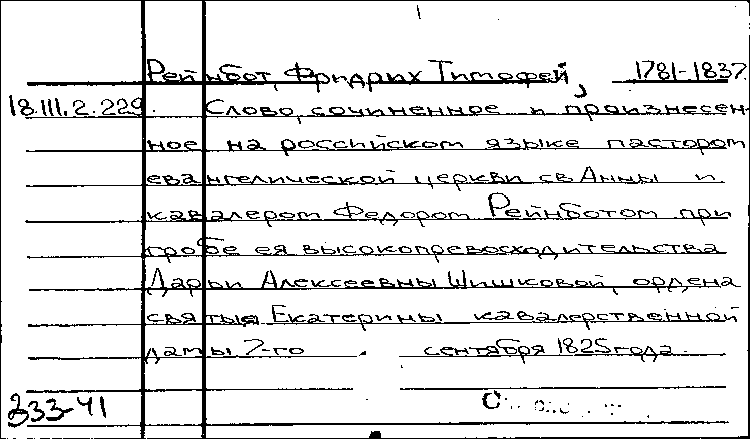 Рейнбот, Фридрих Тимофей, 1781-1837.
18.III.2.229. Слово, сочиненное и произнесен-
ное на российском языке пастором
евангелической церкви св Анны и
кавалером Федором Рейнботом при
гробе ея высокопревосходительства
Дарьи Алексеевны Шишковой, ордена
святыя Екатерины кавалерственной
дамы 7-го сентября 1825 года.
333-41